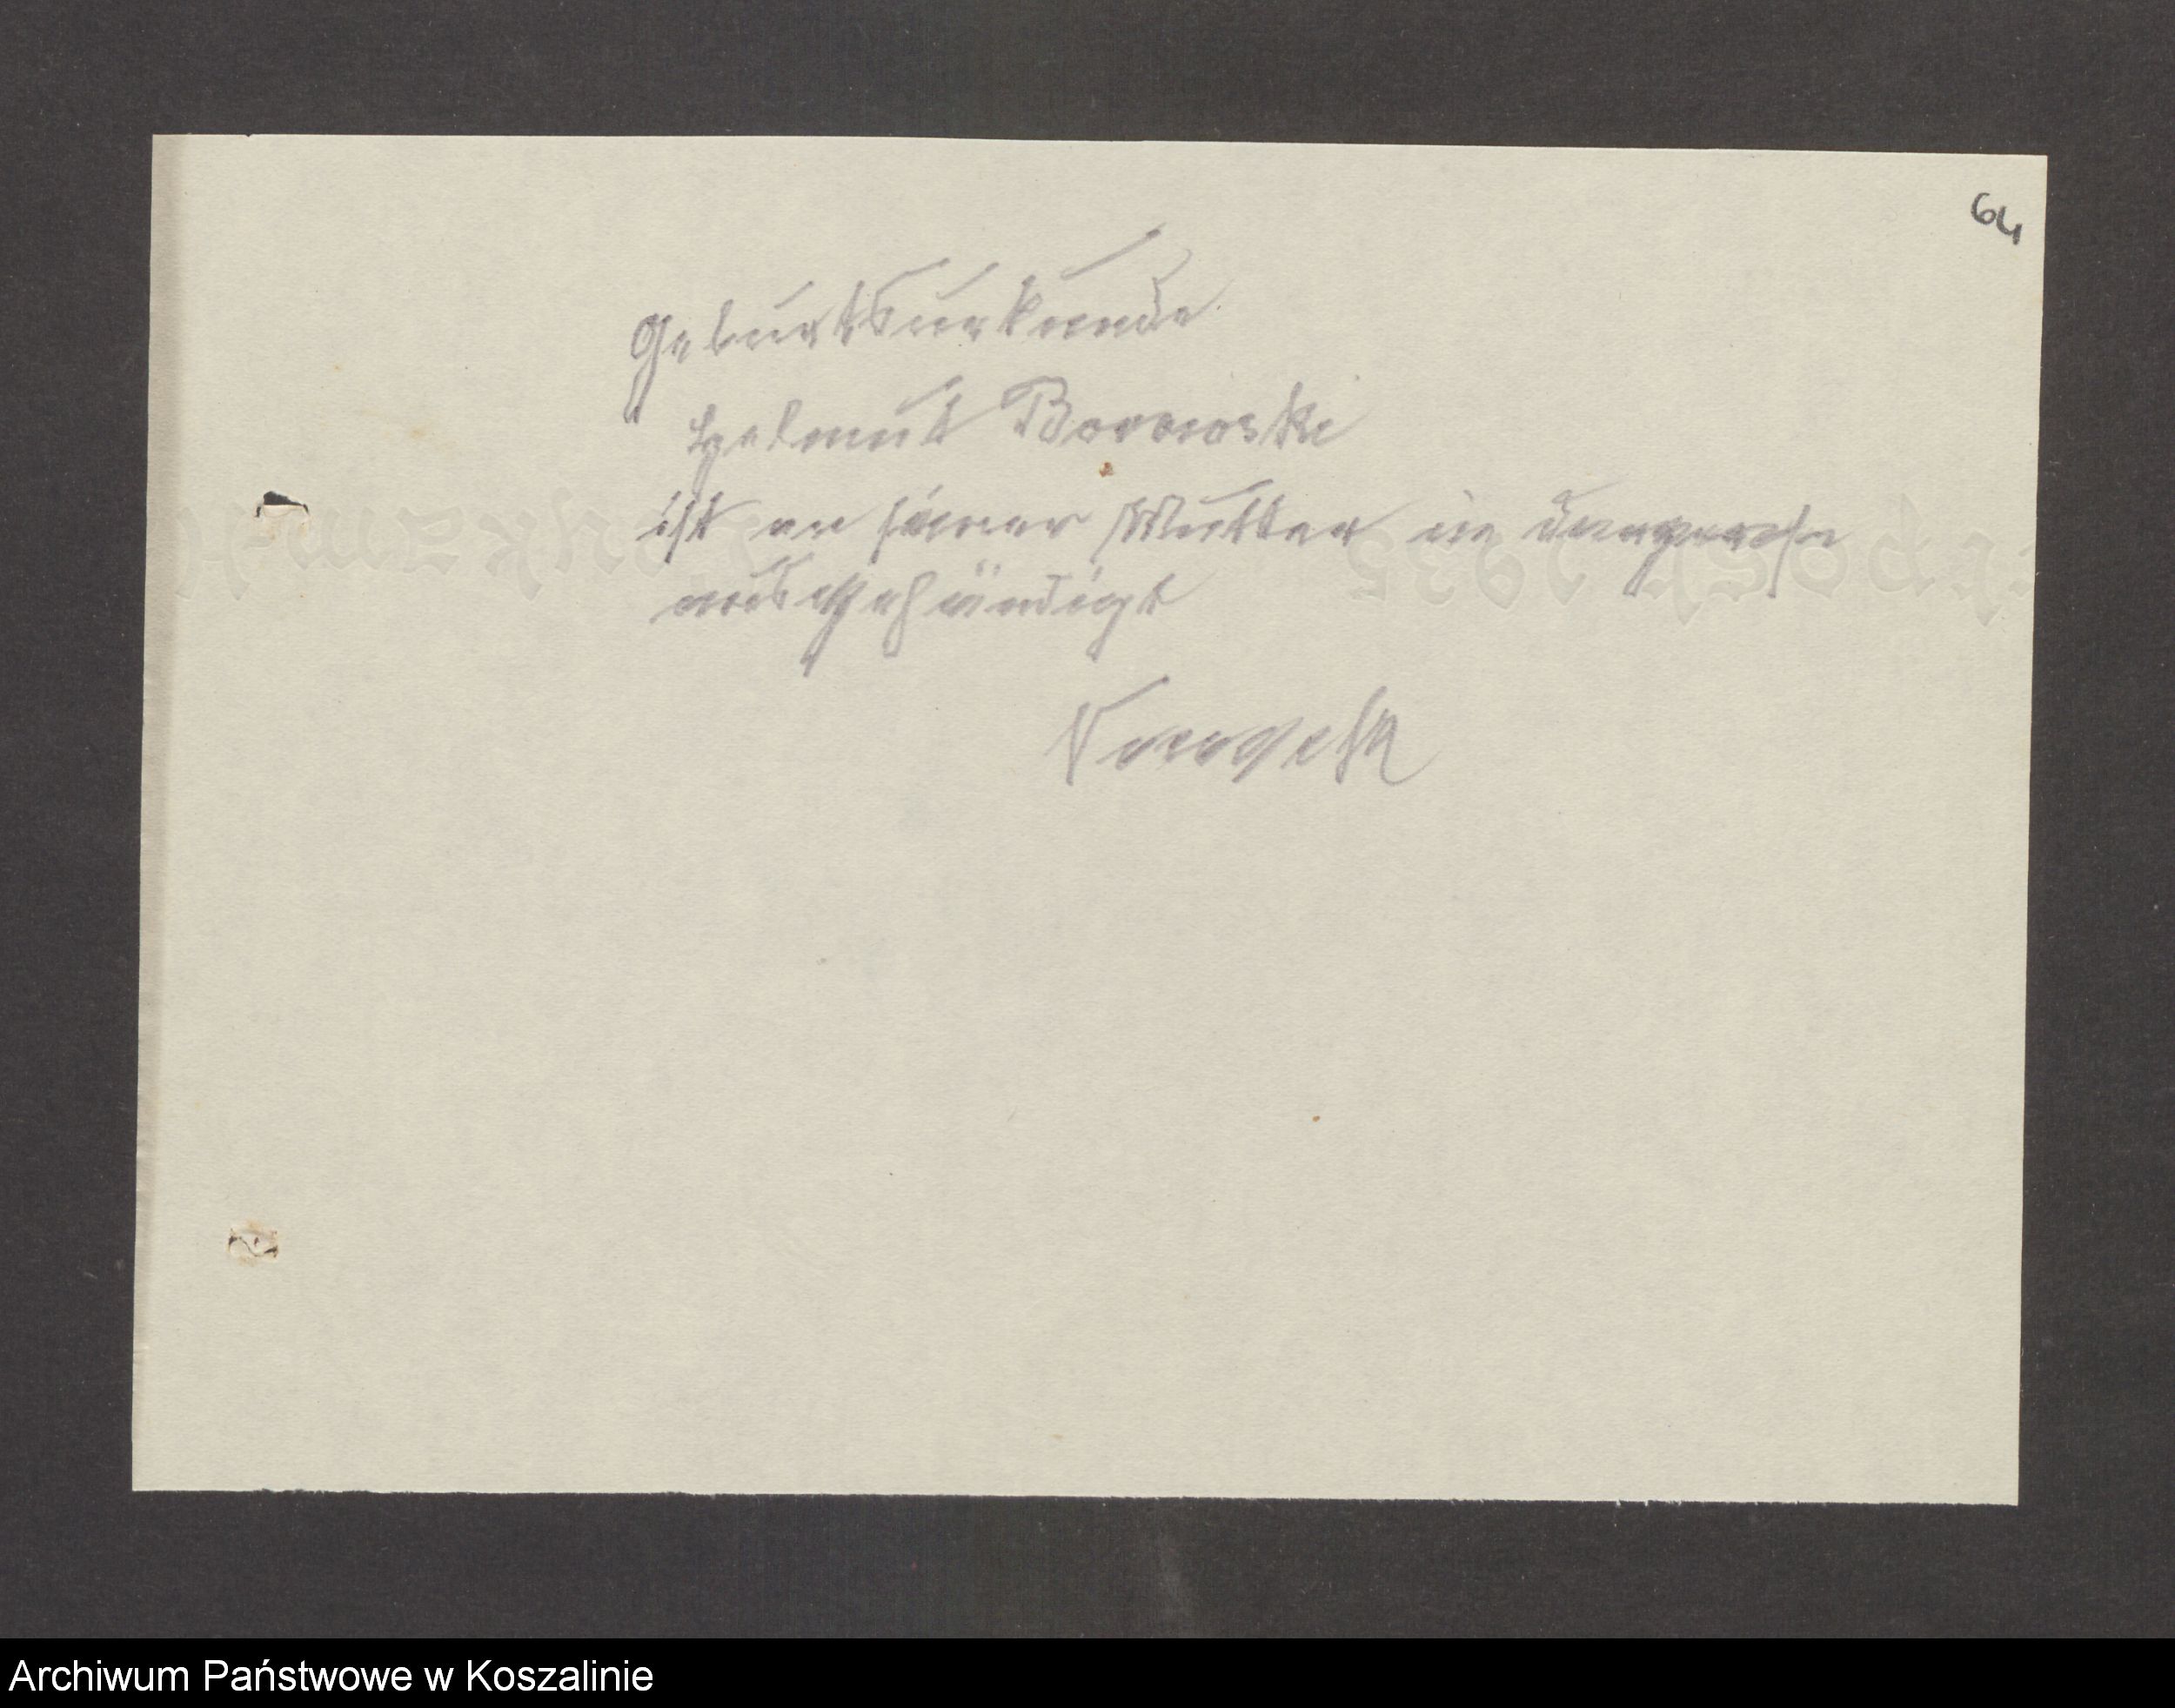 64
Geburtsurkunde
Helmut Borowski
ist an seiner Mutter in
ausgehändigt
Archiwum Państwowe w Koszalinie